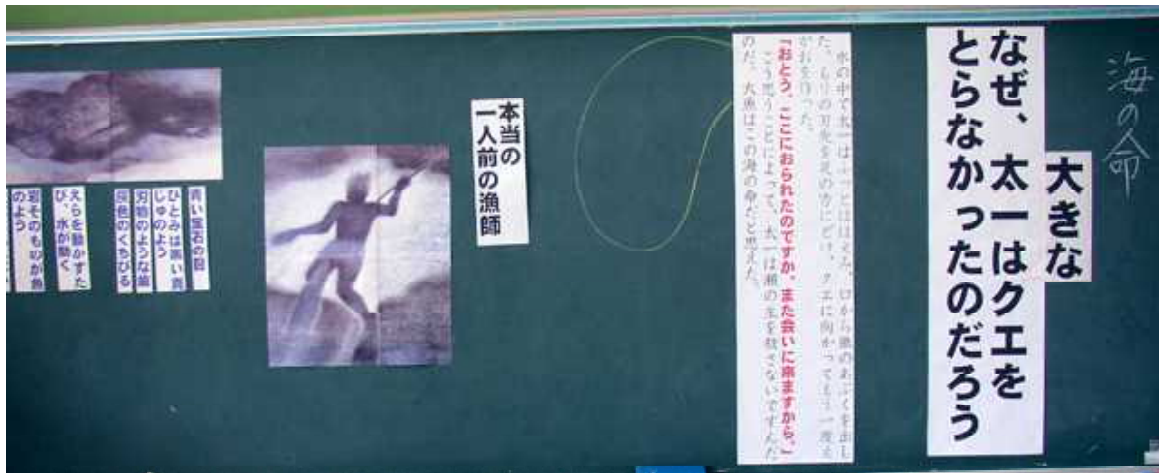 海の命
大きな
なぜ、太一はクエを
とらなかったのだろう
水の中で太一はふっとほほえみ、口から銀のあぶくを出し
た。もりの刃先を足の方にどけ、クエに向かってもう一度え
がおを作った。
「おとう、ここにおられたのですか。また会いに来ますから。」
こう思うことによって、太一は瀬の主を殺さないですんだ
のだ。大魚はこの海の命だと思えた。
本当の
一人前の漁師
青い宝石の目
ひとみは黒い真
じゅのよう
刃物のような歯
灰色のくちびる
えらを動かすた
び、水が動く
岩そのものが魚
のよう